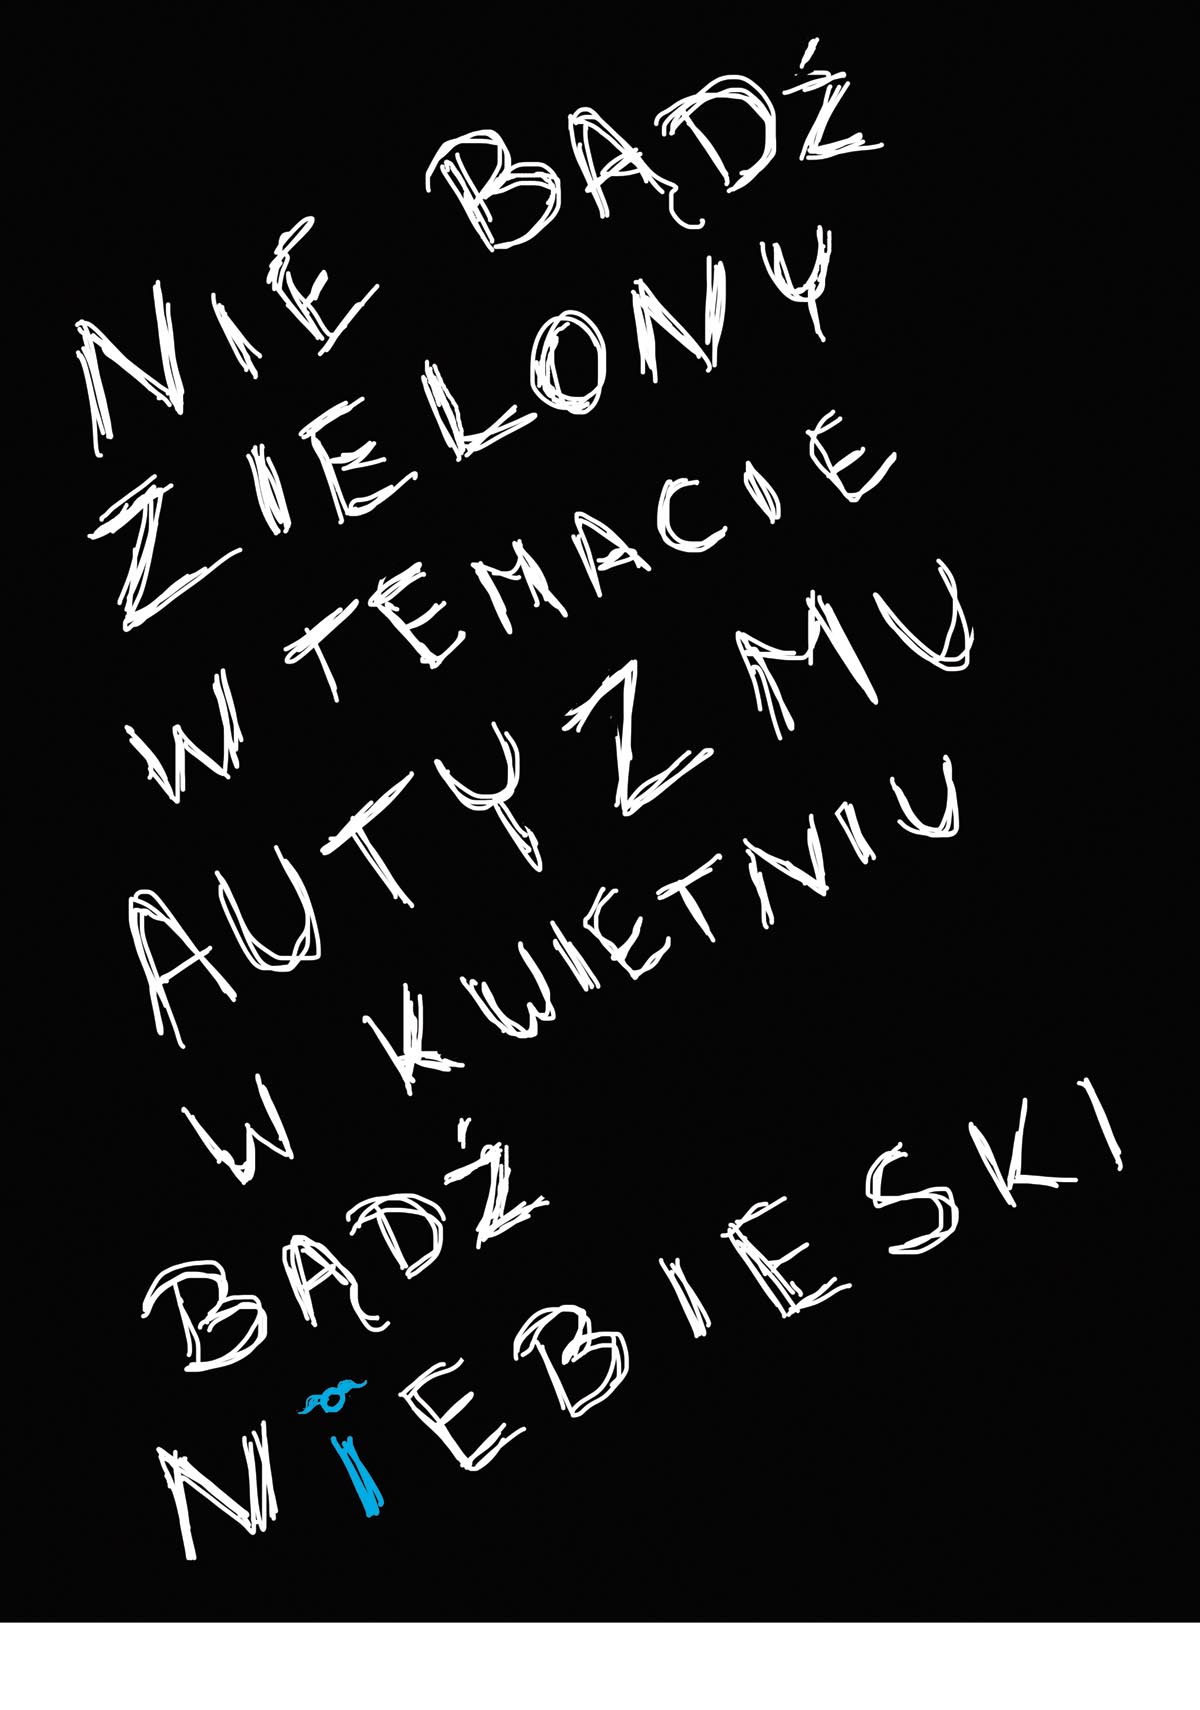 NIE BĄDŹ
ZIELONY
W TEMACIE
AUTYZMU
W KWIETNIU
BĄDŹ
NIEBIESKI